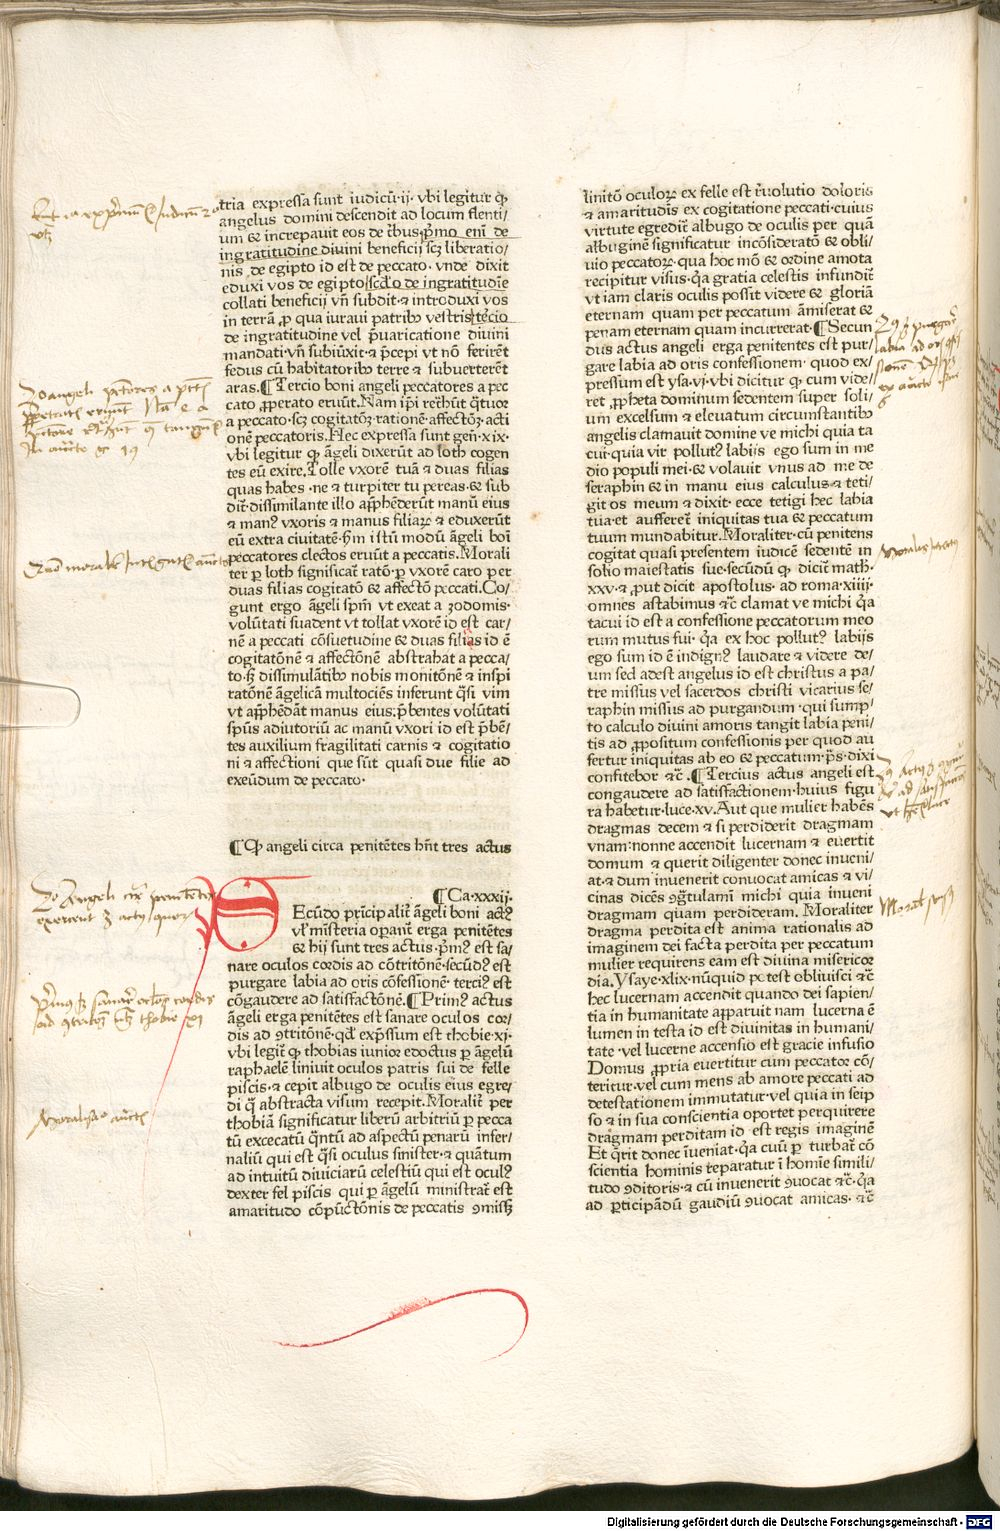 tria expressa sunt iudicū·ij· vbi legitur ꝙ
angelus domini descendit ad locum flenti/
um & increpauit eos de tr̄bus·p̄mo eni᷒ de
ingratitudine diuini beneficij scꝫ liberatio/
nis de egipto id est de peccato· vnde dixit
eduxi vos de egipto scd̄o de ingratitudīe
collati beneficij vn̄ subdit·⁊ introduxi vos
in terrā ꝓ qua iuraui patribꝰ vestris tercio
de ingratitudine vel p̄uaricatione diuini
mandati·vn̄ subiūxit·⁊ p̄cepi vt nō ferirēt
fedus cū habitatoribꝰ terre & subuerterēt
aras.¶ Tercio boni angeli peccatores a pec
cato ꝓperato eruūt. Nam ip̄i retr̄hūt q̄tuor
a peccato·scꝫ cogitatōꝫ·rationē·affectōꝫ·acti
onē peccatoris. Hec expressa sunt gen̄·xix·
vbi legitur ꝙ āgeli dixerūt ad loth cogen
tes eū exire. Tolle vxorē tuā & duas filias
quas habes·ne & turpiter tu pereas·& sub
dit̄·dissimilante illo app̄hēderūt manū eius
⁊ manꝰ vxoris & manus filiaꝝ ⁊ eduxerūt
eū extra ciuitatē·ẜm istū modū āgeli boni
peccatores electos eruūt a peccatis. Morali
ter ꝑ loth significat̄ ratō·ꝑ vxorē caro per
duas filias cogitatō & affectō peccati. Co/
gunt ergo āgeli spm̄ vt exeat a zodomis·
volūtati suadent vt tollat vxorē id est car/
nē a peccati cōsuetudine & duas filias id ē
cogitatōnē & affectōnē abstrahat a pecca/
to·ꝫ dissimulātibꝰ nobis monitōnē & inspi
ratōnē āgelicā multociēs inferunt q̄si vim
vt app̄hēdāt manus eius·p̄bentes volūtati
sp̄us adiutoriū ac manū vxori id est p̄bē/
tes auxilium fragilitati carnis & cogitatio
ni & affectioni que sūt quasi due filie ad
exeūdum de peccato·
¶ Ꝙ angeli circa penitētes hn̄t tres actus
¶ Ca·xxxij·
SEcūdo prīcipalit̄ āgeli boni actꝰ
vl̓ mīsteria operant̄ erga penitētes
& hij sunt tres actus·p̄mꝰ est sa/
nare oculos cordis ad cōtritōnē·secūdꝰ est
purgare labia ad oris cōfessionē·terciꝰ est
cōgaudere ad satisfactōnē.¶ Primꝰ actus
āgeli erga penitētes est sanare oculos cor/
dis ad ꝯtritōnē·qd̄ exp̄ssum est thobie·xj·
vbi legit̄ ꝙ thobias iunior edoctus ꝑ āgelū
raphaelē liniuit oculos patris sui de felle
piscis·⁊ cepit albugo de oculis eius egre/
di q̄ abstracta visum recepit. Moralit̄ per
thobiā significatur liberū arbitriū ꝑ pecca
tū excecatū q̄ntū ad aspectū penarū infer/
naliū qui est q̄si oculus sinister·⁊ quātum
ad intuitū diuiciarū celestiū qui est oculꝰ
dexter fel piscis qui ꝑ āgelū ministrat̄ est
amaritudo cōpūctōnis de peccatis ꝯmissꝫ
linitō oculoꝝ ex felle est r̄uolutio doloris
⁊ amaritudis ex cogitatione peccati·cuius
virtute egredit̄ albugo de oculis per quā
albuginē significatur incōsideratō & obli/
uio peccatoꝝ·qua hoc mō & ordine amota
recipitur visus·q̄a gratia celestis infundit̄
vt iam claris oculis possit videre & gloriā
eternam quam per peccatum āmiserat &
penam eternam quam incurrerat·¶ Secun
dus actus angeli erga penitentes est pur/
gare labia ad oris confessionem· quod ex/
pressum est ysa·vj·vbi dicitur ꝙ cum vide/
ret ꝓpheta dominum sedentem super soli/
um excelsum & eleuatum circumstantibꝰ
angelis clamauit domine ve michi quia ta
cui·quia vir pollutꝰ labijs ego sum in me
dio populi mei·& volauit vnus ad me de
seraphin & in manu eius calculus·⁊ teti/
git os meum ⁊ dixit·ecce tetigi hec labia
tua·et aufferet̄ iniquitas tua & peccatum
tuum mundabitur. Moraliter·cū penitens
cogitat quasi presentem iudicē sedentē in
solio maiestatis sue·secūdū ꝙ dicit̄ math·
xxv·⁊ ꝓut dicit apostolus·ad roma·xiiij·
omnes astabimus ⁊c̄ clamat ve michi q̄a
tacui id est a confessione peccatorum meo
rum mutus fui·q̄a ex hoc pollutꝰ labijs
ego sum id ē indignꝰ laudare ⁊ videre de/
um sed adest angelus id est christus a pa/
tre missus vel sacerdos christi vicarius se/
raphin missus ad purgandum·qui sump/
to calculo diuini amoris tangit labia peni/
tis ad ꝓpositum confessionis per quod au
fertur iniquitas ab eo & peccatum·p̄s·dixi
confitebor ⁊c̄·¶ Tercius actus angeli est
congaudere ad satisfactionem·huius figu
ra habetur·luce·xv. Aut que mulier habēs
dragmas decem ⁊ si perdiderit dragmam
vnam·nonne accendit lucernam ⁊ euertit
domum ⁊ querit diligenter donec inueni/
at·⁊ dum inuenerit conuocat amicas & vi/
cinas dicēs ꝯgr̄tulamī michi quia inueni
dragmam quam perdideram. Moraliter
dragma perdita est anima rationalis ad
imaginem dei facta perdita per peccatum
mulier requirens eam est diuina misericor
dia. Ysaye·xlix·nūquid potest obliuisci ⁊c̄
hec lucernam accendit quando dei sapien/
tia in humanitate apparuit nam lucerna ē
lumen in testa id est diuinitas in humani/
tate·vel lucerne accensio est gracie infusio
Domus ꝓpria euertitur cum peccator cō/
teritur·vel cum mens ab amore peccati ad
detestationem immutatur·vel quia in seip
so ⁊ in sua conscientia oportet perquirere
dragmam perditam id est regis imaginē
Et q̄rit donec iueniat·q̄a cuū ꝑ turbat̄ cō
scientia hominis reparatur ī homīe simili/
tudo ꝯditoris·⁊ cū inuenerit ꝯuocat ⁊c̄·q̄a
ad ꝑticipādū gaudiū ꝯuocat amicas· ⁊c̄
Digitalisierung gefördert durch die Deutsche Forschungsgemeinschaft - DFG